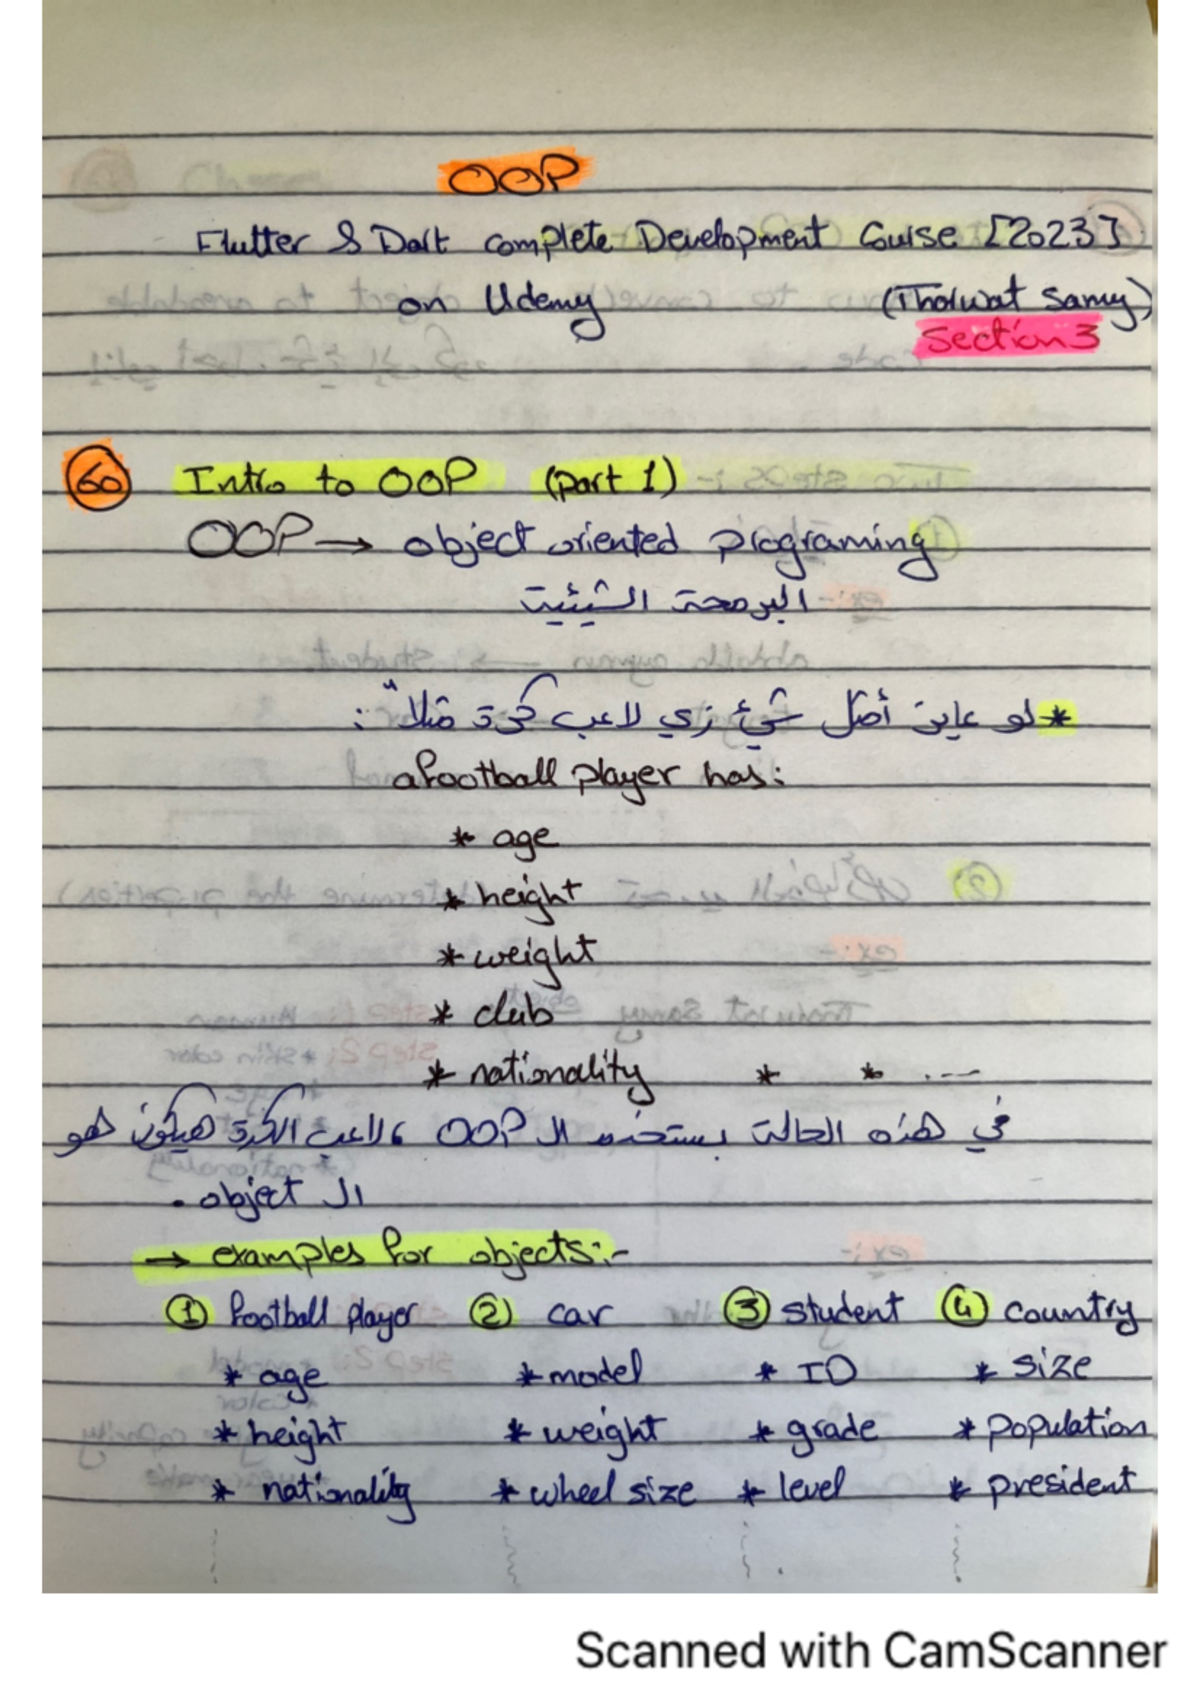 OOP
Flutter & Dart complete Development Course [2023]
on Udemy (Tholwat Samy)
Section 3
60 Intro to OOP (part 1)
OOP → object oriented programing
البرمجة الشيئية
* لو عايز أمثل شئ زي لاعب كرة مثلاً :
a football player has:
* age
* height
* weight
* club
* nationality * * ....
في هذه الحالة بستخدم ال OOP ، لاعب الكرة هيكون هو
ال object .
→ examples for objects:-
1 football player 2 car 3 student 4 country
* age * model * ID * size
* height * weight * grade * population
* nationality * wheel size * level * president
Scanned with CamScanner